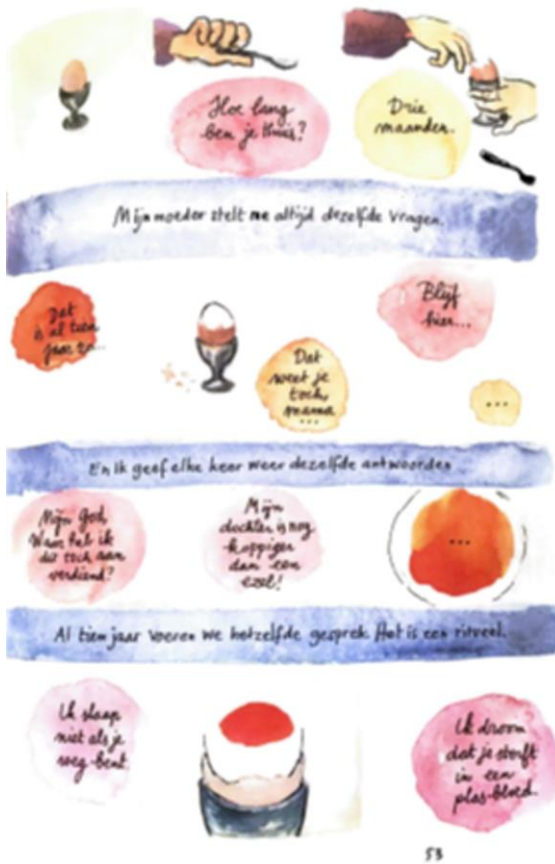 Hoe lang
ben je thuis?
Drie
maanden.
Mijn moeder stelt me altijd dezelfde vragen.
Dat
is al tien
jaar zo...
Dat
weet je
toch,
mama
...
Blijf
hier...
...
En ik geef elke keer weer dezelfde antwoorden
Mijn God,
Waar heb ik
dit toch aan
verdiend?
Mijn
dochter is nog
koppiger
dan een
ezel!
...
Al tien jaar voeren we hetzelfde gesprek. Het is een ritueel.
Ik slaap
niet als je
weg bent.
Ik droom
dat je sterft
in een
plas bloed.
53